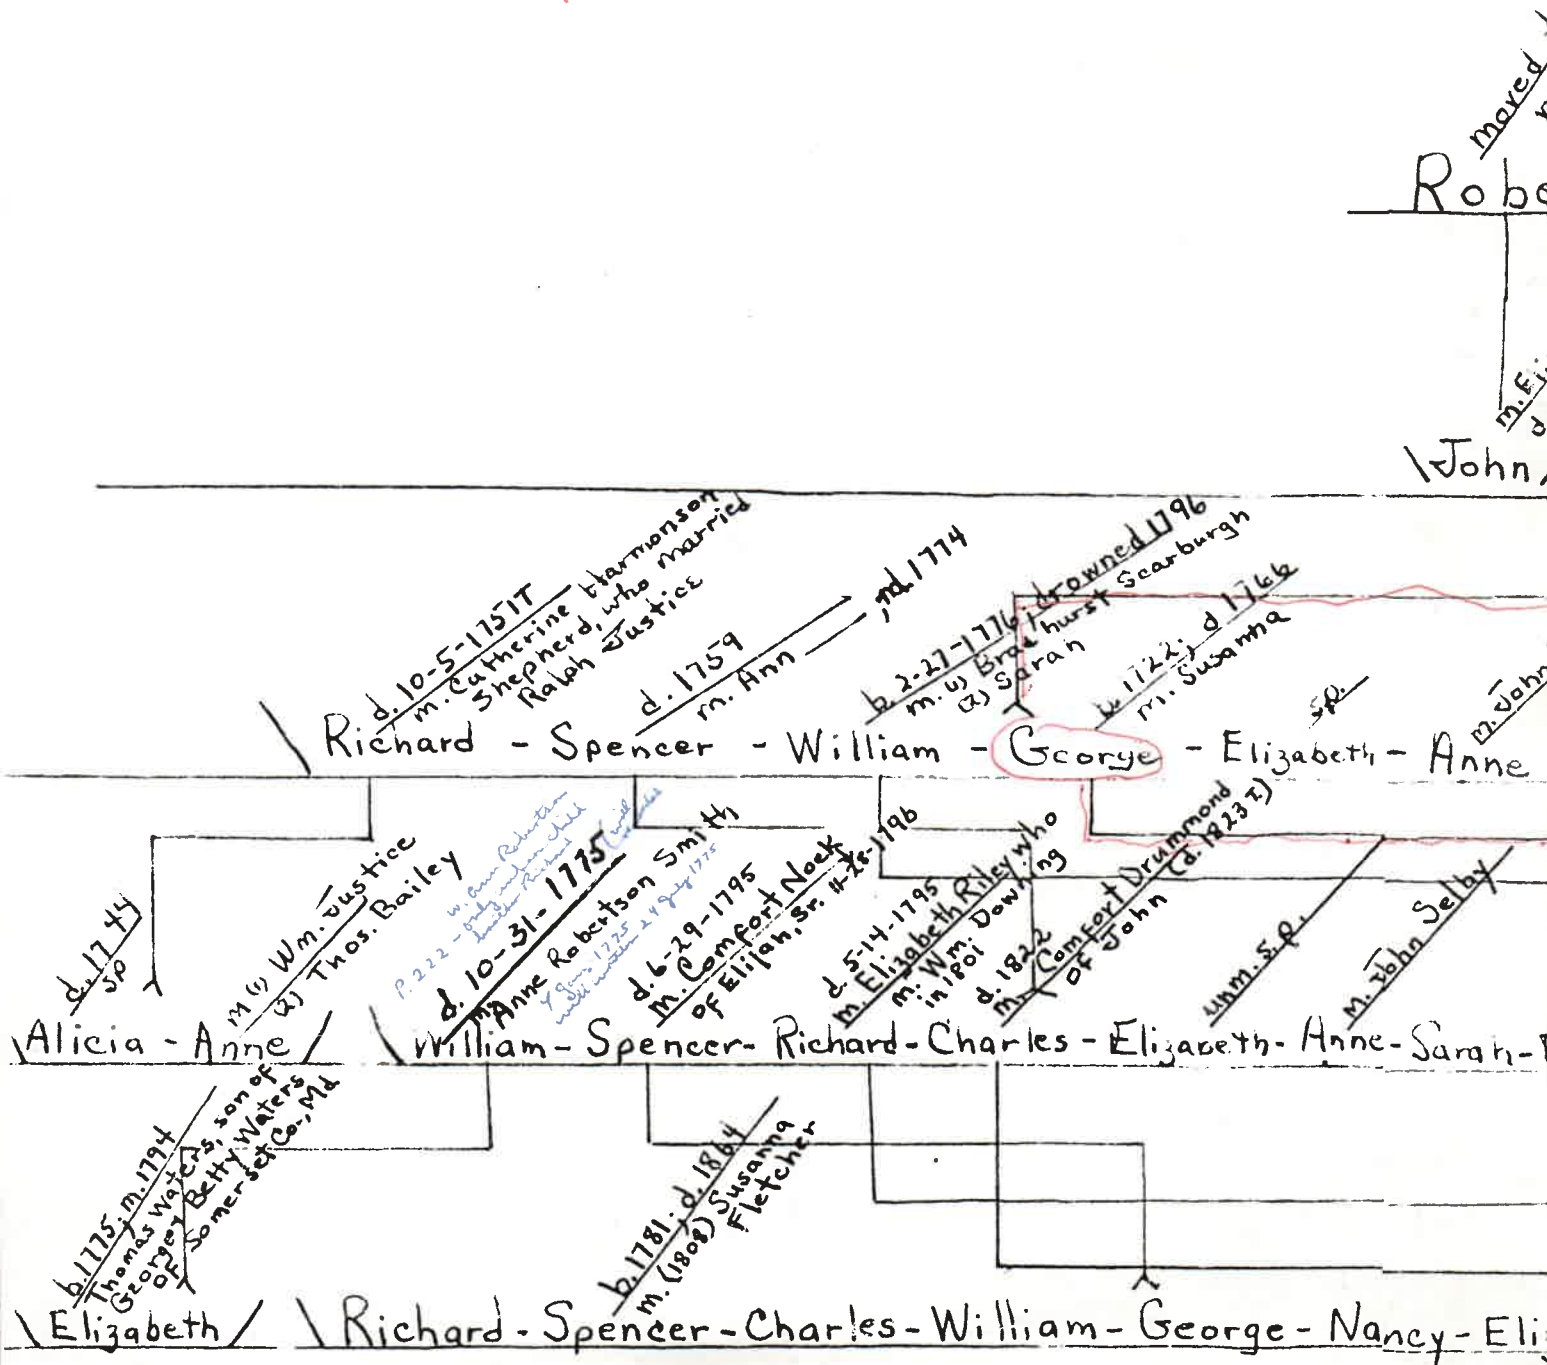 moved
Robe
m. Eli
d.
\John/
d. 10-5-1751T
m. Catherine Harmonson
Shepherd, who married
Ralph Justice
d. 1759
m. Ann ——, nd. 1774
b. 2-27-1776; drowned 1796
m. (1) Bradhurst Scarburgh
(2) Sarah
b. 1722; d 1766
m. Susanna
s.p.
m. John
\Richard - Spencer - William - George - Elizabeth - Anne
d. 1744
sp
M (1) Wm. Justice
(2) Thos. Bailey
P. 222 - w. Ann Robertson
d. 10-31-1775
m. Anne Robertson Smith
will written 24 July 1775
d. 6-29-1795
m. Comfort Nock
of Elijah, Sr. 11-28-1796
d. 5-14-1795
m. Elizabeth Riley who
m. Wm. Downing
in 1801
d. 1822
m. Comfort Drummond
of John (d. 1823 T.)
unm. s.p.
m. John Selby
\Alicia - Anne/ \William - Spencer - Richard - Charles - Elizabeth - Anne - Sarah -
b. 1775; m. 1794
Thomas Waters, son of
George & Betty Waters
of Somerset Co., Md
b. 1781; d. 1864
m. (1808) Susanna
Fletcher
\Elizabeth/ \Richard - Spencer - Charles - William - George - Nancy - Eliz